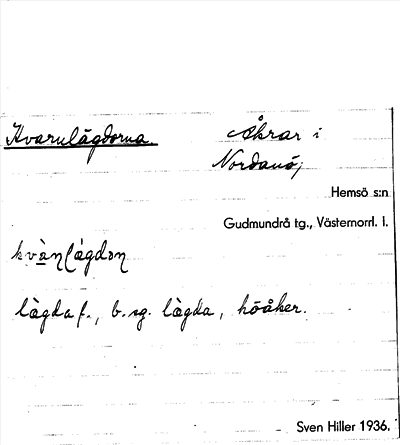 Kvarnlägdorna. Åkrar i
Nordanö,
Hemsö s:n
Gudmundrå tg., Västernorrl. l.
kvàn̥lägdən
lägda f., b. sg. lägda, höåker.
Sven Hiller 1936.